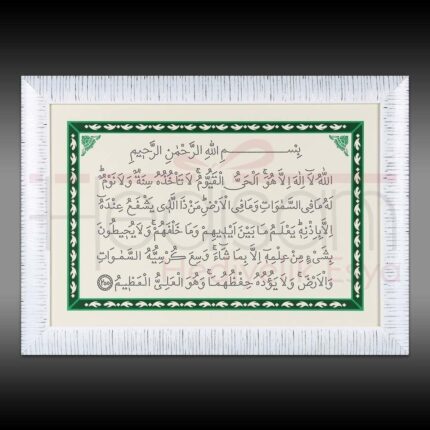 بِسْمِ اللّٰهِ الرَّحْمٰنِ الرَّحِيمِ
اَللّٰهُ لَا اِلٰهَ اِلَّا هُوَ اَلْحَىُّ الْقَيُّومُ لَا تَأْخُذُهُ سِنَةٌ وَلَا نَوْمٌ
لَهُ مَا فِى السَّمٰوَاتِ وَمَا فِى الْاَرْضِ مَنْ ذَا الَّذِى يَشْفَعُ عِنْدَهُ
اِلَّا بِاِذْنِهِ يَعْلَمُ مَا بَيْنَ اَيْدِيهِمْ وَمَا خَلْفَهُمْ وَلَا يُحِيطُونَ
بِشَىْءٍ مِنْ عِلْمِهِ اِلَّا بِمَا شَاءَ وَسِعَ كُرْسِيُّهُ السَّمٰوَاتِ
وَالْاَرْضَ وَلَا يَؤُدُهُ حِفْظُهُمَا وَهُوَ الْعَلِىُّ الْعَظِيمُ ﴿٢٥٥﴾